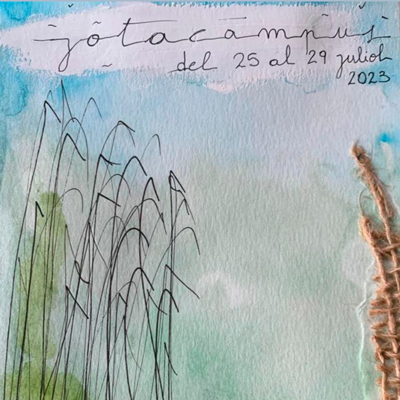 jotacampus
del 25 al 29 juliol
2023